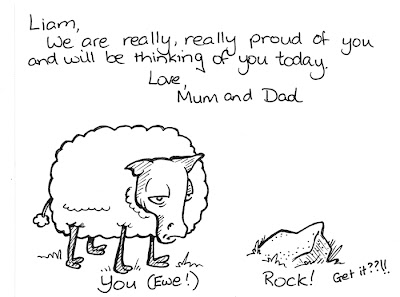 Liam,
We are really, really proud of you
and will be thinking of you today.
Love,
Mum and Dad
You (Ewe!)
Rock!
Get it??!!